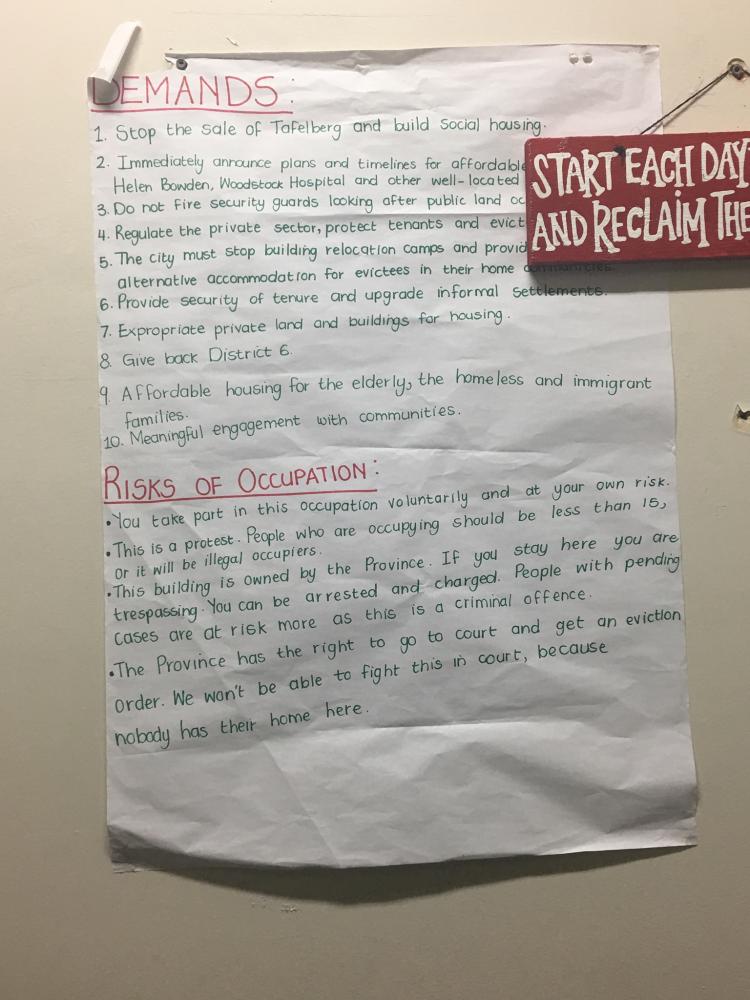 DEMANDS:
1. Stop the sale of Tafelberg and build social housing.
2. Immediately announce plans and timelines for affordable
Helen Bowden, Woodstock Hospital and other well-located
3. Do not fire security guards looking after public land
4. Regulate the private sector, protect tenants and
5. The city must stop building relocation camps and
alternative accommodation for evictees in their home communities.
6. Provide security of tenure and upgrade informal settlements.
7. Expropriate private land and buildings for housing.
8. Give back District 6.
9. Affordable housing for the elderly, the homeless and immigrant
families.
10. Meaningful engagement with communities.
RISKS OF OCCUPATION:
•You take part in this occupation voluntarily and at your own risk.
•This is a protest. People who are occupying should be less than 15,
or it will be illegal occupiers.
•This building is owned by the Province. If you stay here you are
trespassing. You can be arrested and charged. People with pending
cases are at risk more as this is a criminal offence.
•The Province has the right to go to court and get an eviction
order. We won't be able to fight this in court, because
nobody has their home here.
START EACH DAY
AND RECLAIM THE